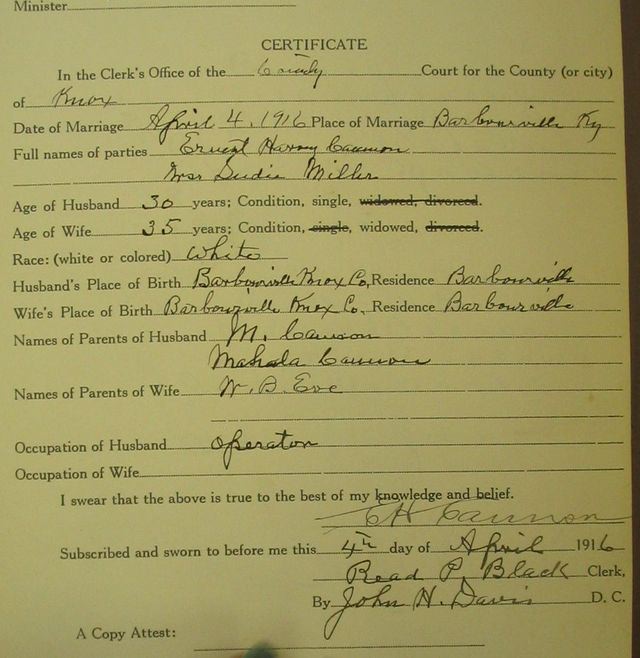 Minister
CERTIFICATE
In the Clerk's Office of the County Court for the County (or city)
of Knox
Date of Marriage April 4, 1916 Place of Marriage Barbourville Ky
Full names of parties Ernest Harvey Cannon
Mrs Sudie Miller
Age of Husband 30 years; Condition, single, widowed, divorced.
Age of Wife 35 years; Condition, single, widowed, divorced.
Race: (white or colored) White
Husband's Place of Birth Barbourville Knox Co, Residence Barbourville
Wife's Place of Birth Barbourville Knox Co. Residence Barbourville
Names of Parents of Husband M. Cannon
Mahala Cannon
Names of Parents of Wife W. B. Eve
Occupation of Husband operator
Occupation of Wife
I swear that the above is true to the best of my knowledge and belief.
E H Cannon
Subscribed and sworn to before me this 4th day of April 1916
Read P. Black Clerk,
By John H. Davis D. C.
A Copy Attest: